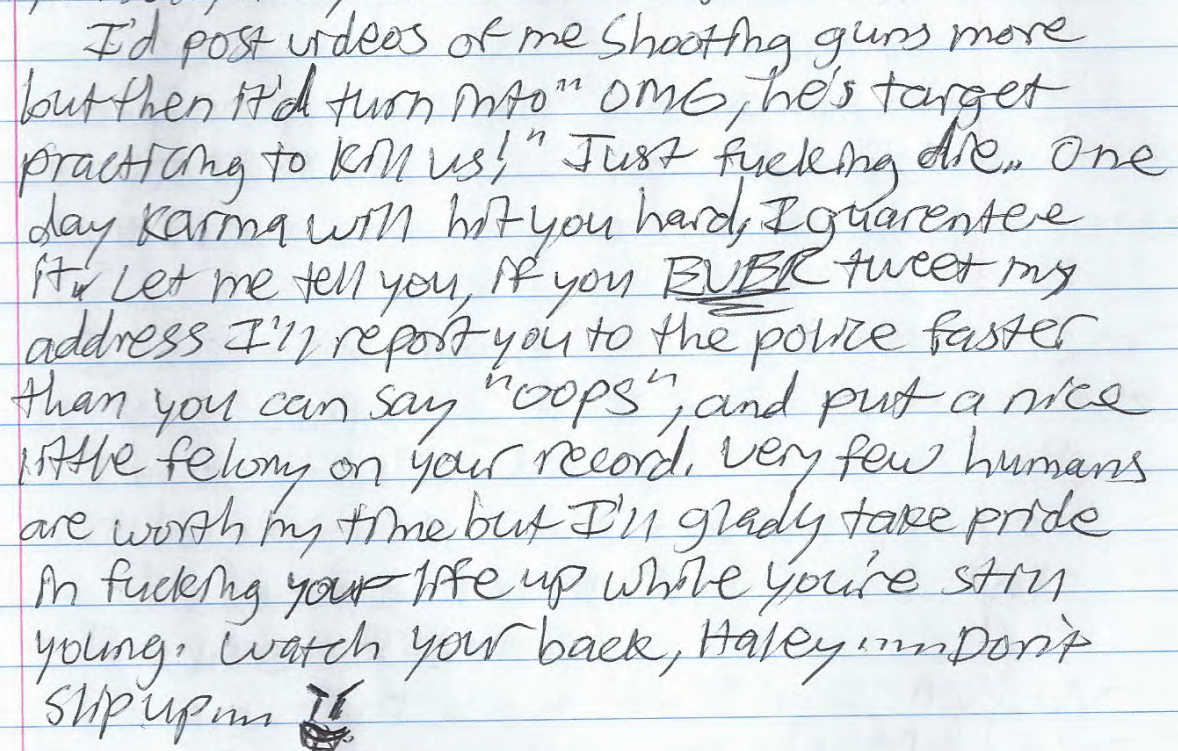 I'd post videos of me shooting guns more
but then it'd turn into" OMG, he's target
practicing to kill us!" Just fucking die.. One
day Karma will hit you hard, I guarentee
it. Let me tell you, if you EVER tweet my
address I'll report you to the police faster
than you can say "oops", and put a nice
little felony on your record. Very few humans
are worth my time but I'll glady take pride
in fucking your life up while you're still
young. Watch your back, Haley..... Don't
slip up....